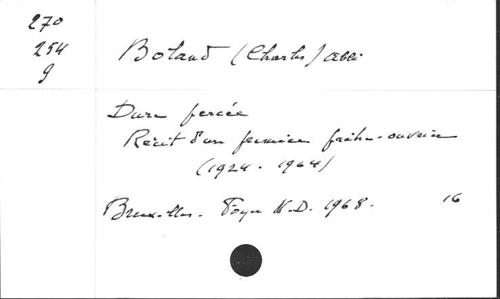 270
254
9
Boland (Charles) abbé
Dure percée
Récit d'un premier prêtre-ouvrier
(1924-1964)
Bruxelles. Foyer N.D. 1968. 16